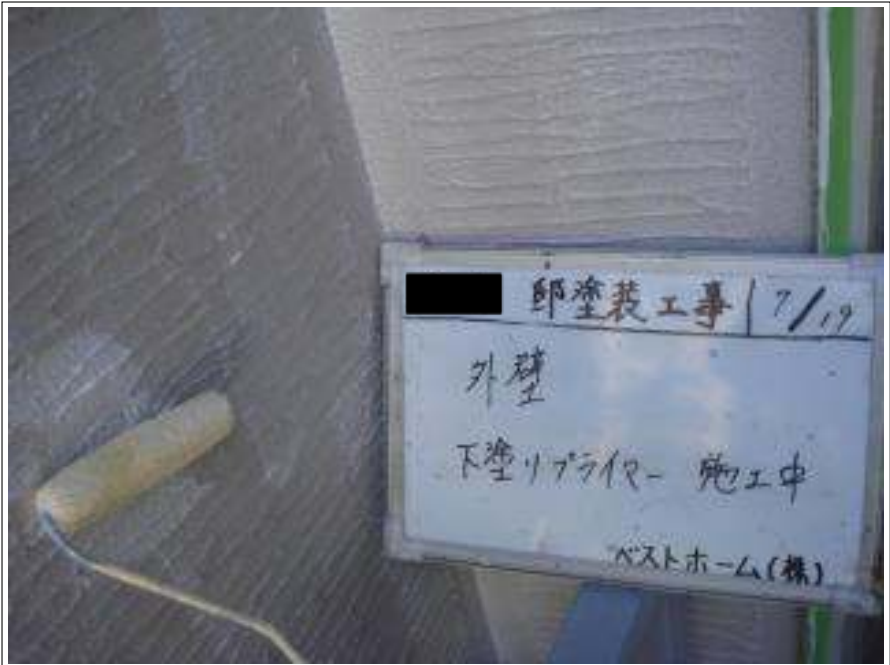 邸塗装工事 7/19
外壁
下塗りプライマー 施工中
ベストホーム(株)